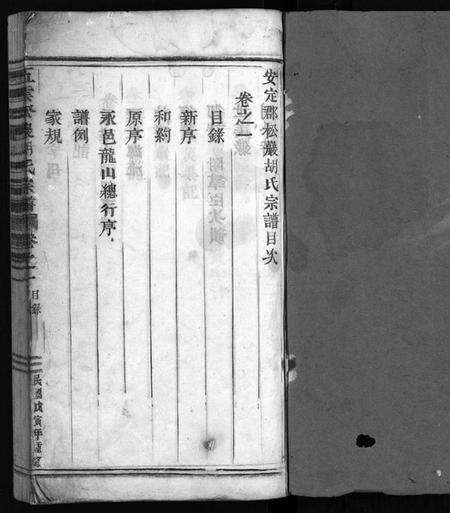 安定郡松巖胡氏宗譜目次
卷之一
目錄
新序
和約
原序
永邑龍山總行序
譜例
家規
胡氏宗譜
卷之一
目錄
民國戊寅年重修